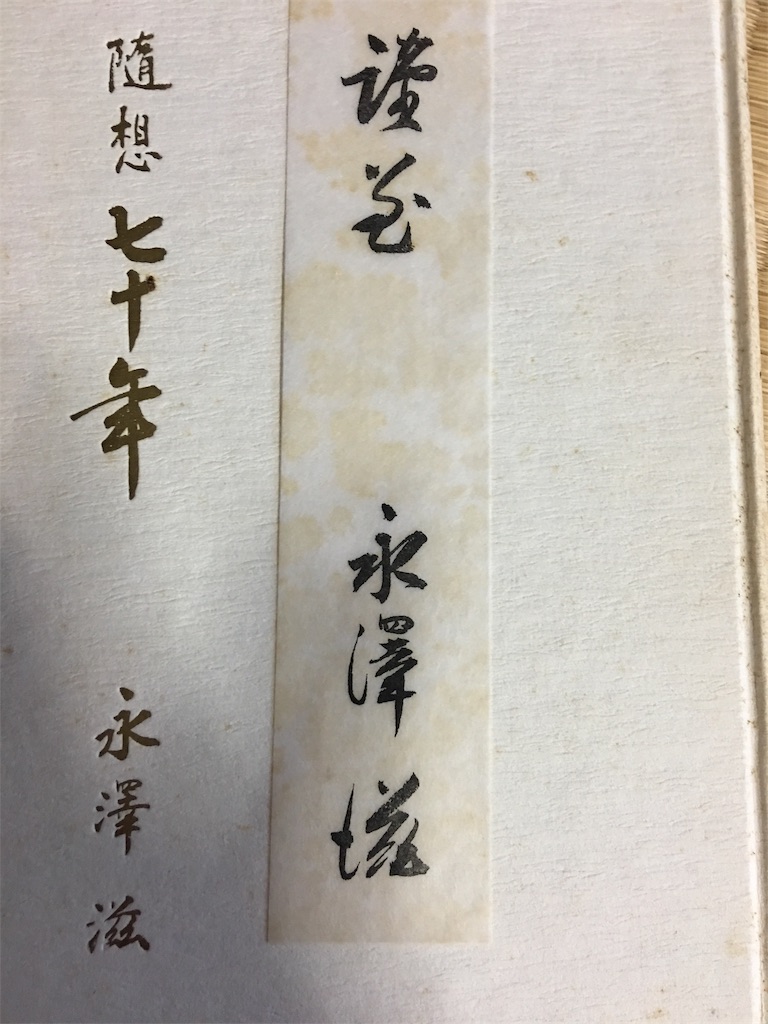 謹呈
永澤 滋
隨想 七十年
永澤 滋